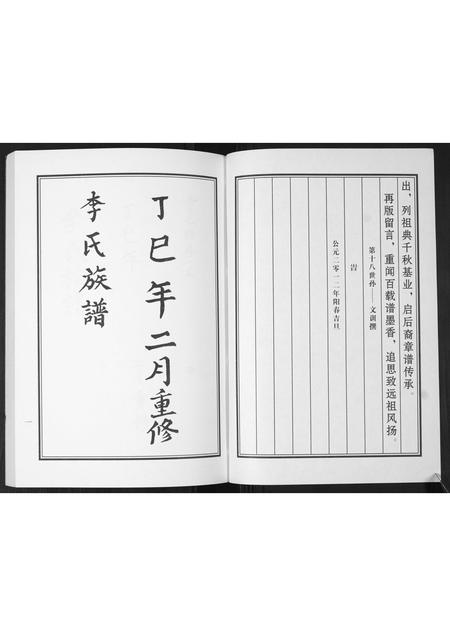 出，列祖典千秋基业，启后裔章谱传承。
再版留言，重闻百载谱墨香，追思致远祖风扬。
第十八世孙——文训撰
吉
公元二零一二年阳春吉旦
丁巳年二月重修
李氏族譜
一